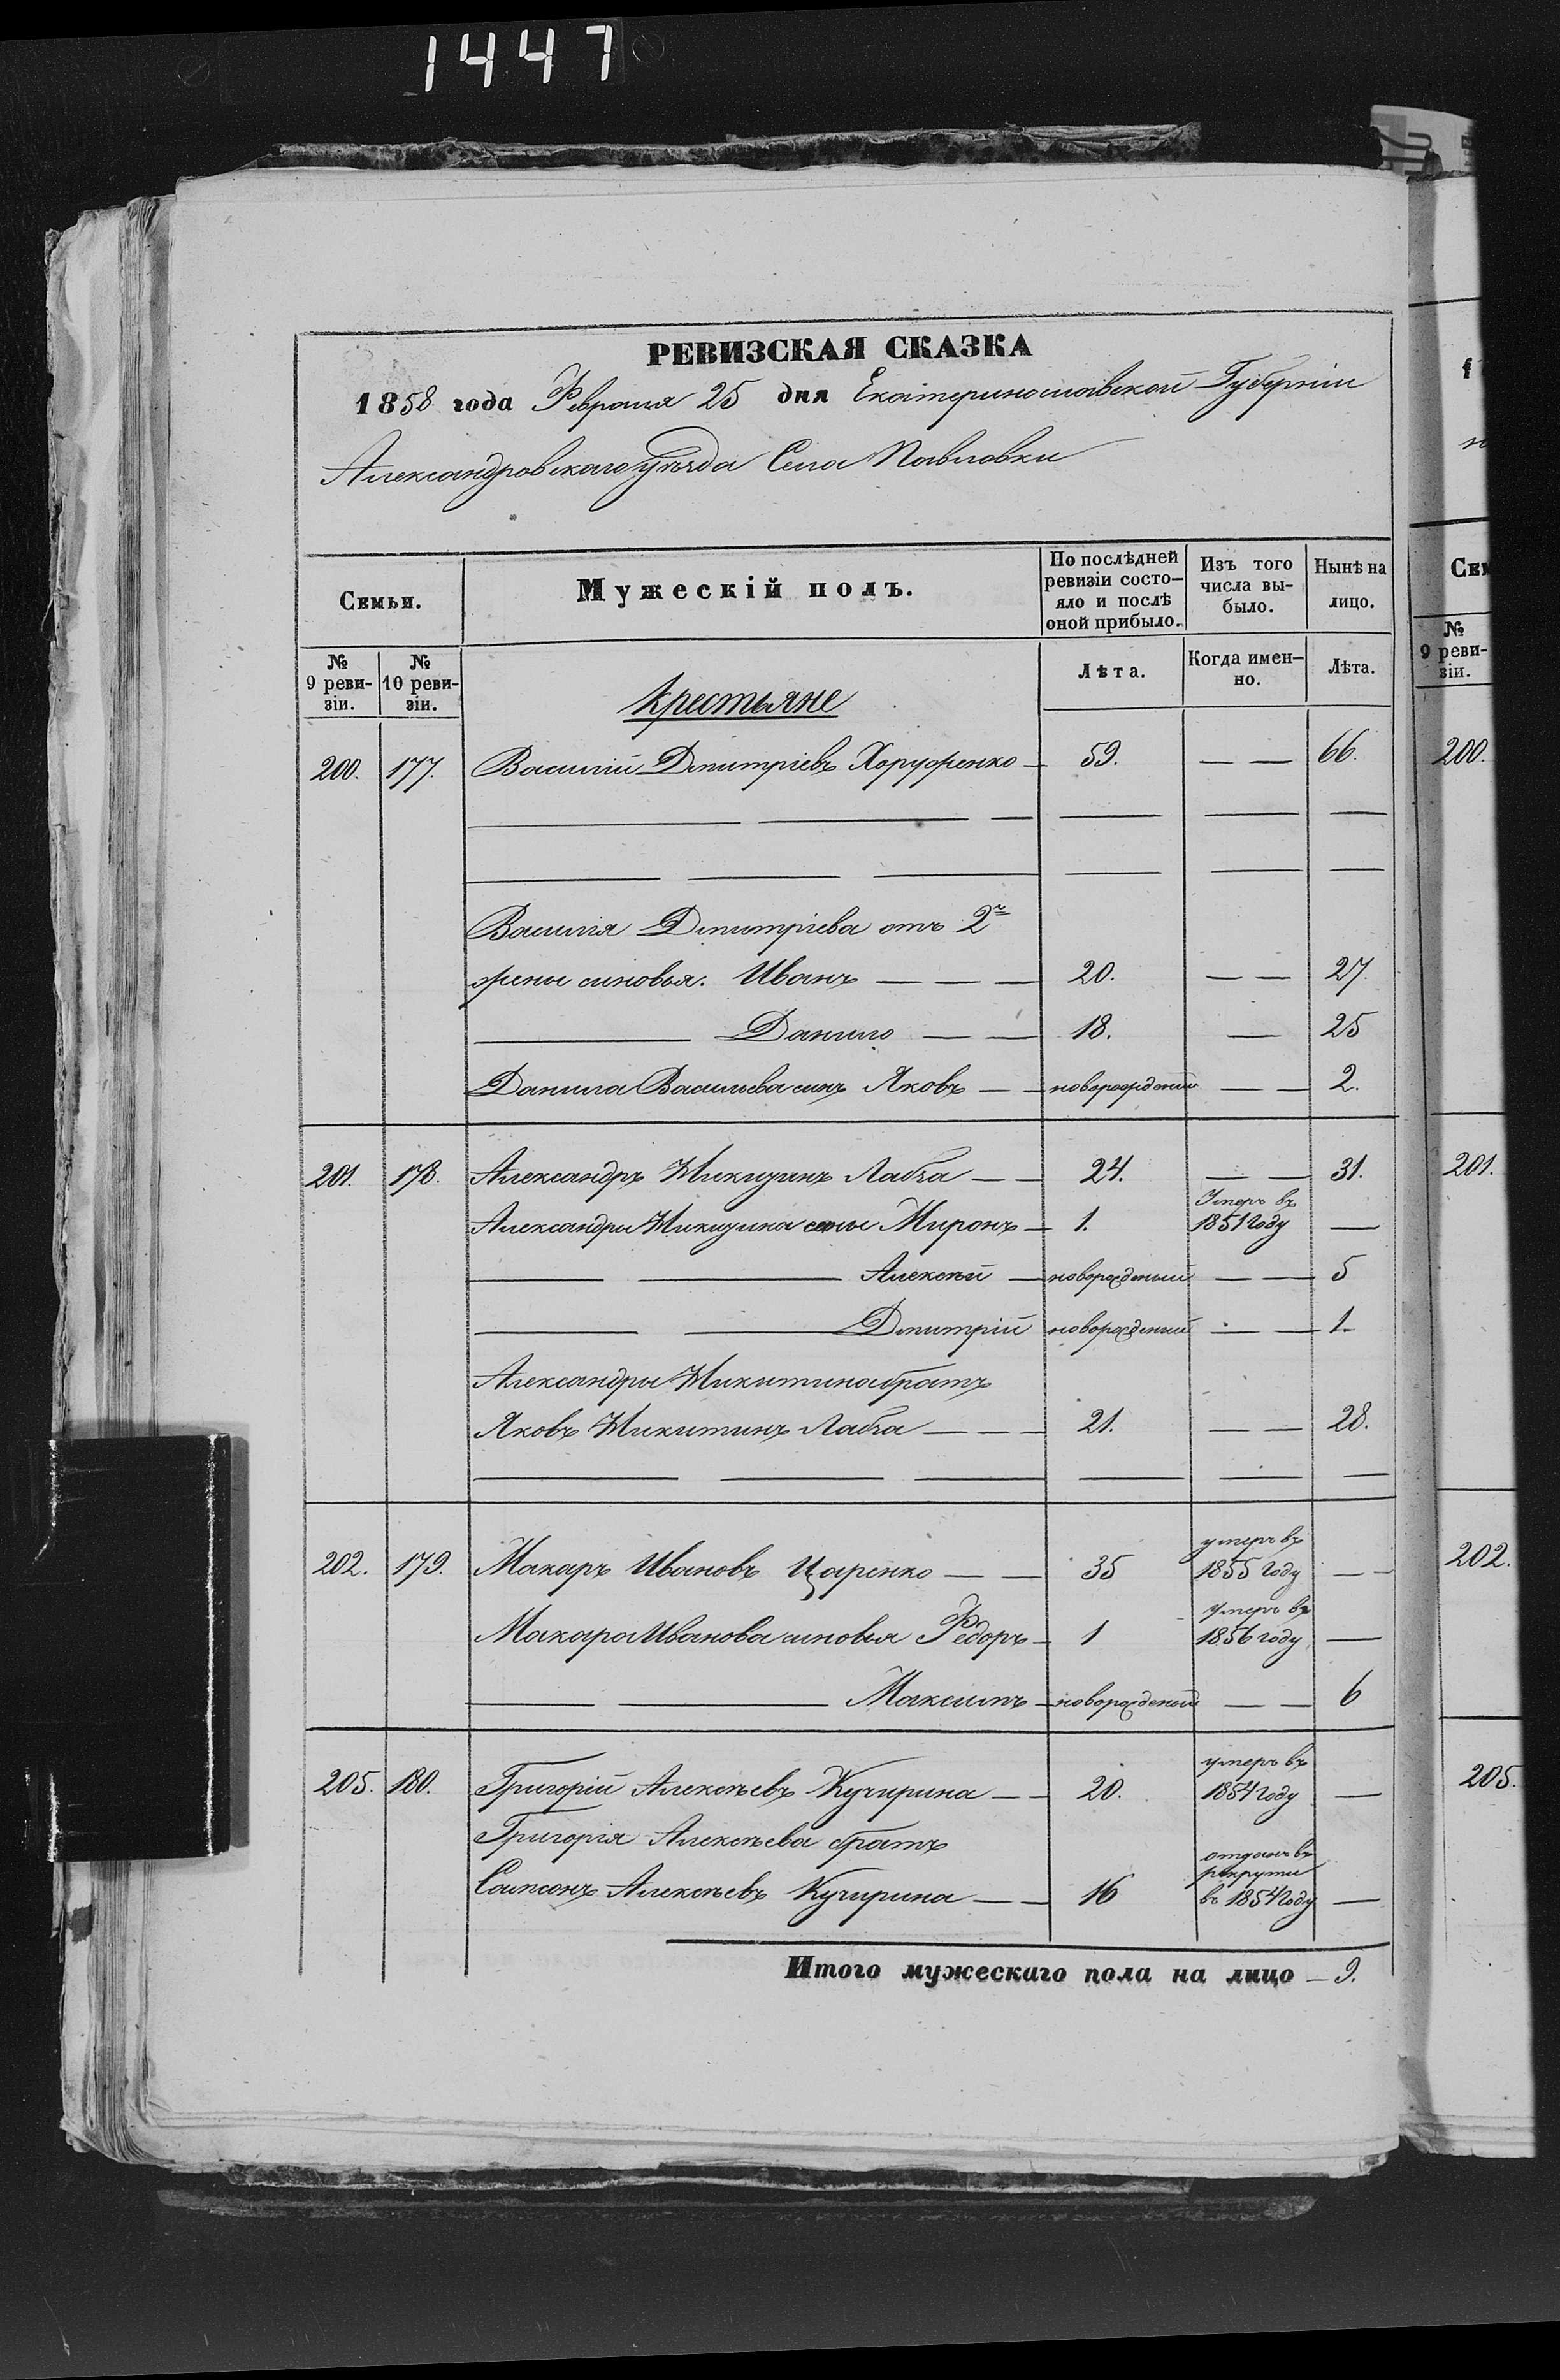 1447
РЕВИЗСКАЯ СКАЗКА
1858 года Февраля 25 дня Екатеринославской Губерніи
Александровскаго уѣзда Села Павловки
Семьи.
Мужескій полъ.
По послѣдней ревизіи состо-
яло и послѣ оной прибыло.
Изъ того числа вы-
было.
Нынѣ на лицо.
№ 9 реви-
зіи.
№ 10 реви-
зіи.
Лѣта.
Когда имен-
но.
Лѣта.
Крестьяне
200. 177. Василій Дмитріевъ Хоруженко 59. 66.
Василія Дмитріева отъ 2й
жены синовья. Иванъ 20. 27.
Данило 18. 25
Данила Васильева синъ Яковъ новорожденный 2.
201. 178. Александръ Никитинъ Лабза 24. 31.
Александра Никитина сины Миронъ 1. Умеръ въ 1851 году
Алексѣй новорожденый 5
Дмитрій новорожденый 1.
Александра Никитина братъ
Яковъ Никитинъ Лабза 21. 28.
202. 179. Макаръ Ивановъ Царенко 35 умеръ въ 1855 году
Макара Иванова синовья Федоръ 1 Умеръ въ 1856 году
Максимъ новорожденый 6
205. 180. Григорій Алексѣевъ Кучирина 20. умеръ въ 1854 году
Григорія Алексѣева братъ
Сампсонъ Алексѣевъ Кучирина 16 отданъ въ рекруты въ 1854 году
Итого мужескаго пола на лицо 9.
Сем
№ 9 реви-
зіи.
200.
201.
202.
205.